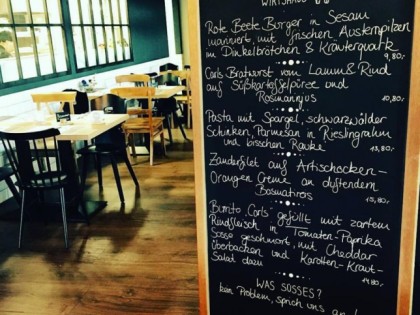 Rote Beete Burger in Sesam
mariniert, mit frischen Austernpilzen
im Dinkelbrötchen & Kräuterquark
9,80.-
Carls Bratwurst vom Lamm & Rind
auf Süßkartoffelpüree und
Rosmarinjus 10,80.-
Pasta mit Spargel, schwarzwälder
Schinken, Parmesan in Rieslingrahm
und bisschen Rauke 13,80.-
Zanderfilet auf Artischocken-
Orangen Creme an duftendem
Basmatireis 15,80.-
Burrito Carls gefüllt mit zartem
Rindfleisch in Tomaten-Paprika
Sosse geschmort, mit Cheddar
überbacken und Karotten-Kraut-
Salat dazu 14,80.-
WAS SÜSSES?
kein Problem, sprich uns an